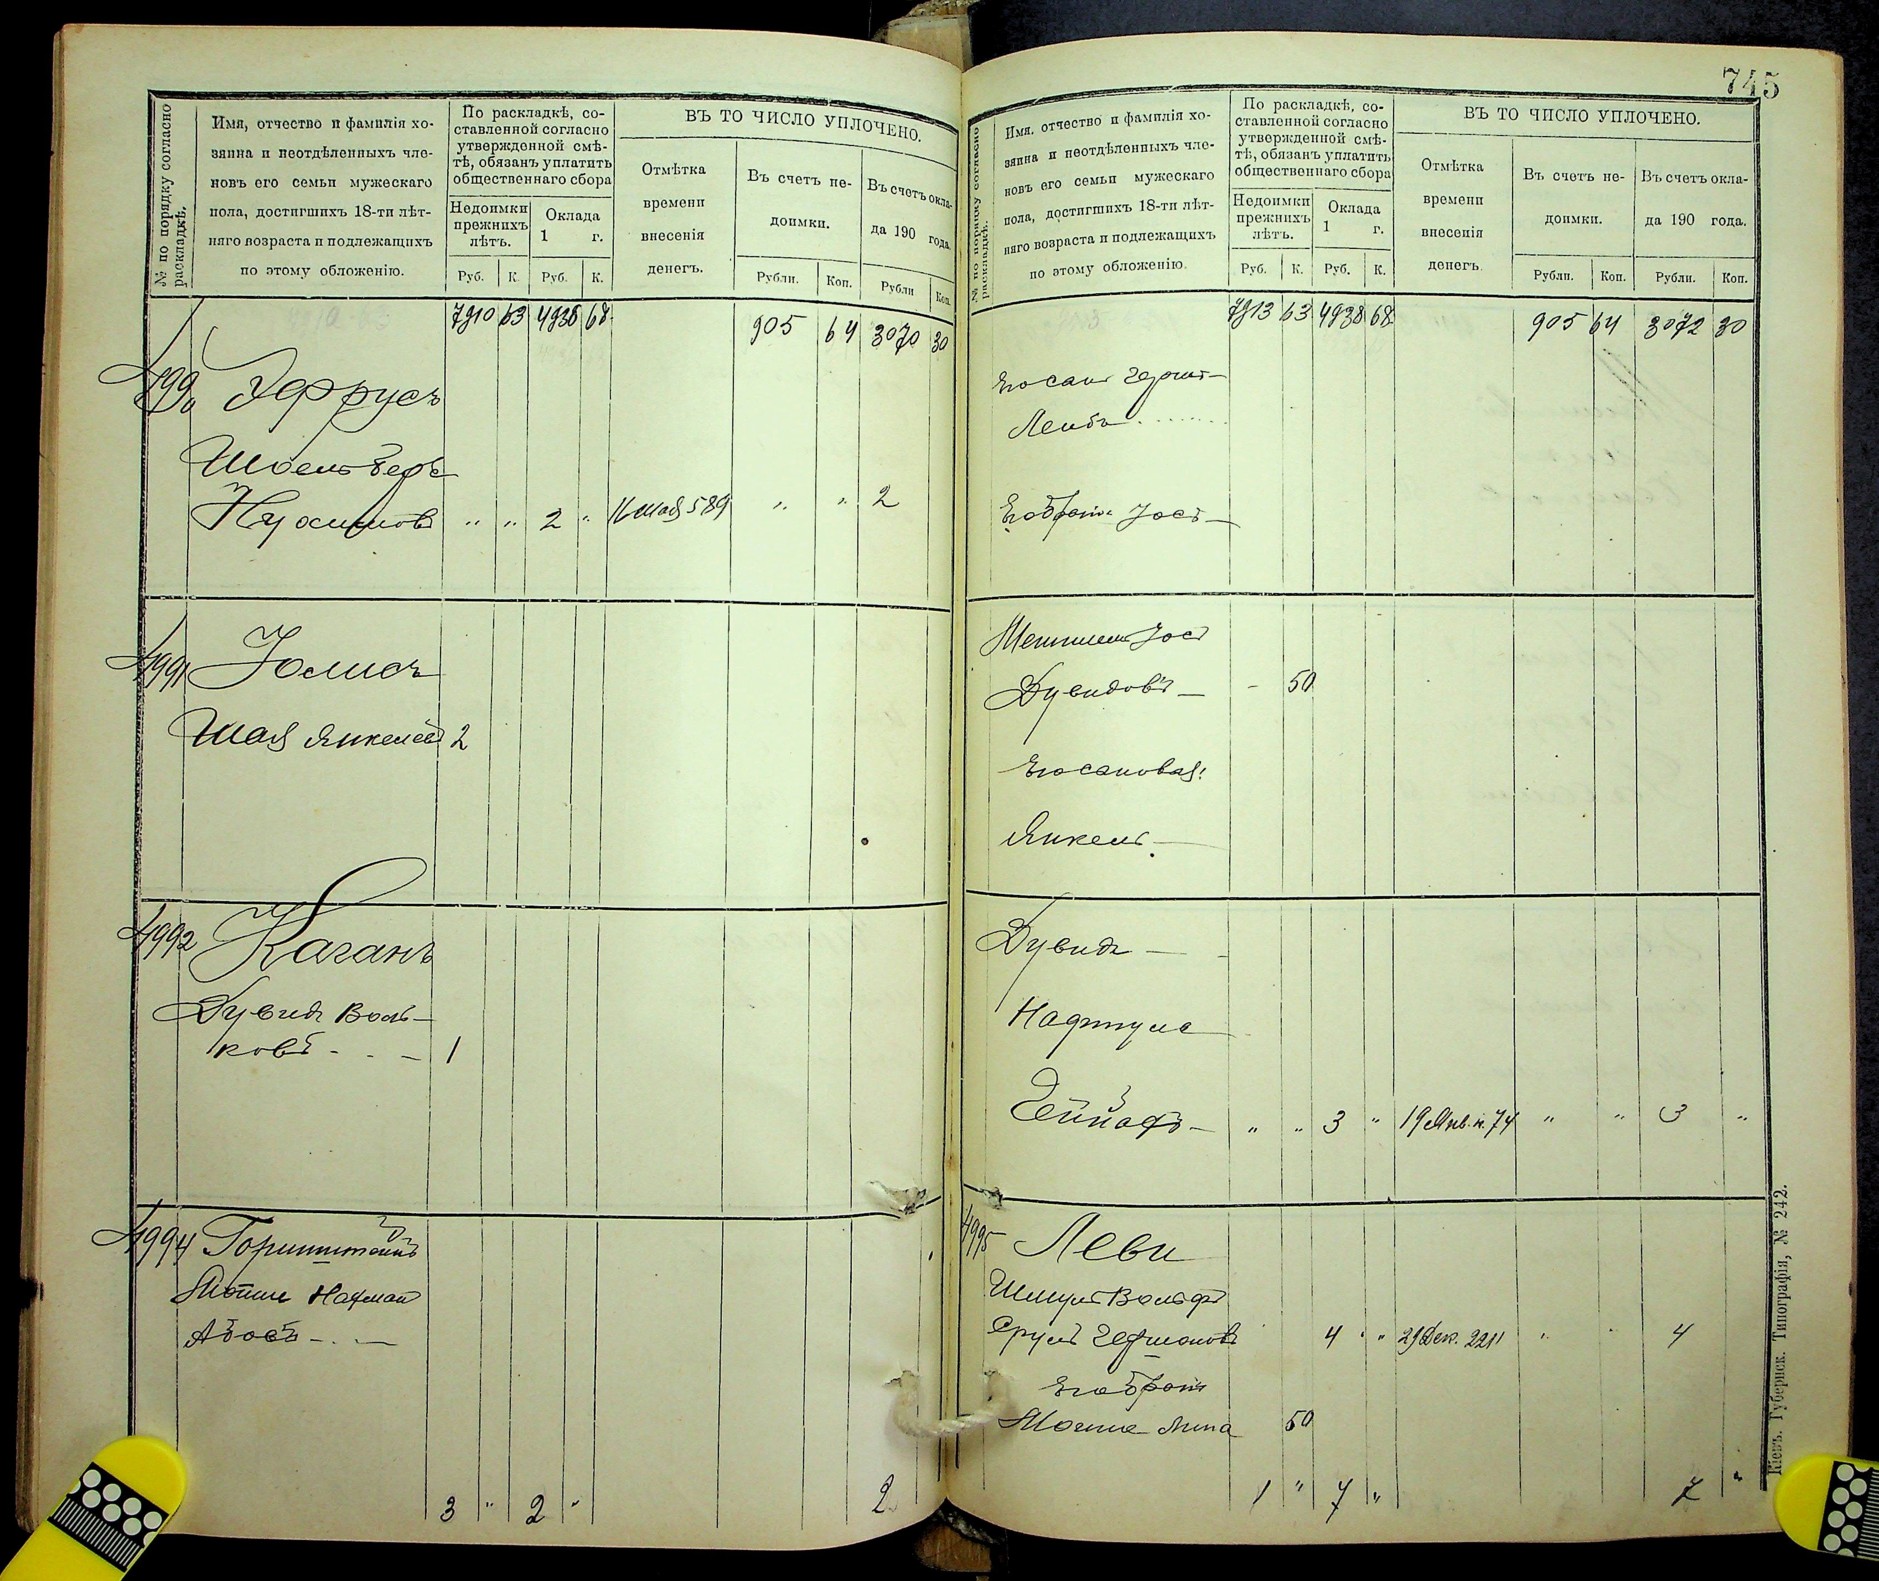 745
№ по порядку согласно раскладкѣ.
Имя, отчество и фамилія хо-
зяина и неотдѣленныхъ чле-
новъ его семьи мужескаго
пола, достигшихъ 18-ти лѣт-
няго возраста и подлежащихъ
по этому обложенію.
По раскладкѣ, со-
ставленной согласно
утвержденной смѣ-
тѣ, обязанъ уплатить
общественнаго сбора
Недоимки
прежнихъ
лѣтъ.
Оклада
1 г.
Руб. К. Руб. К.
ВЪ ТО ЧИСЛО УПЛОЧЕНО.
Отмѣтка
времени
внесенія
денегъ.
Въ счетъ не-
доимки.
Въ счетъ окла-
да 190 года.
Рубли. Коп. Рубли Коп.
7910 63 4936 68 905 64 3070 30
4990 Эфрусъ
Шоель Беръ
Нусимовъ " " 2 " 11 мая 589 " " 2
4991 Юлисъ
Шая Янкелевъ 2
4992 Каганъ
Дувидъ Воль-
ковъ - . - 1
4994 Горинштейнъ
Мотше Нахман
Абовъ - . -
3 " 2 " 2
№ по порядку согласно раскладкѣ.
Имя, отчество и фамилія хо-
зяина и неотдѣленныхъ чле-
новъ его семьи мужескаго
пола, достигшихъ 18-ти лѣт-
няго возраста и подлежащихъ
по этому обложенію.
По раскладкѣ, со-
ставленной согласно
утвержденной смѣ-
тѣ, обязанъ уплатить
общественнаго сбора
Недоимки
прежнихъ
лѣтъ.
Оклада
1 г.
Руб. К. Руб. К.
ВЪ ТО ЧИСЛО УПЛОЧЕНО.
Отмѣтка
времени
внесенія
денегъ.
Въ счетъ не-
доимки.
Въ счетъ окла-
да 190 года.
Рубли. Коп. Рубли. Коп.
7913 63 4938 68 905 64 3072 30
Его сынъ Герш-
Лейбъ
Его братъ Іосъ
Іось
Дувидовъ - - 50
Его сыновья:
Янкель
Дувидъ -
Нафтула
" " 3 " 19 Янв. 74 " " 3 "
4995 Леви
Шмулъ Вольфъ
Срулъ Гершоновъ 4 " 29 Дек. 2211 " 4
Его братъ
Мотше Липа 50
1 " 7 " 7 "
Кіевъ. Губернск. Типографія, № 242.